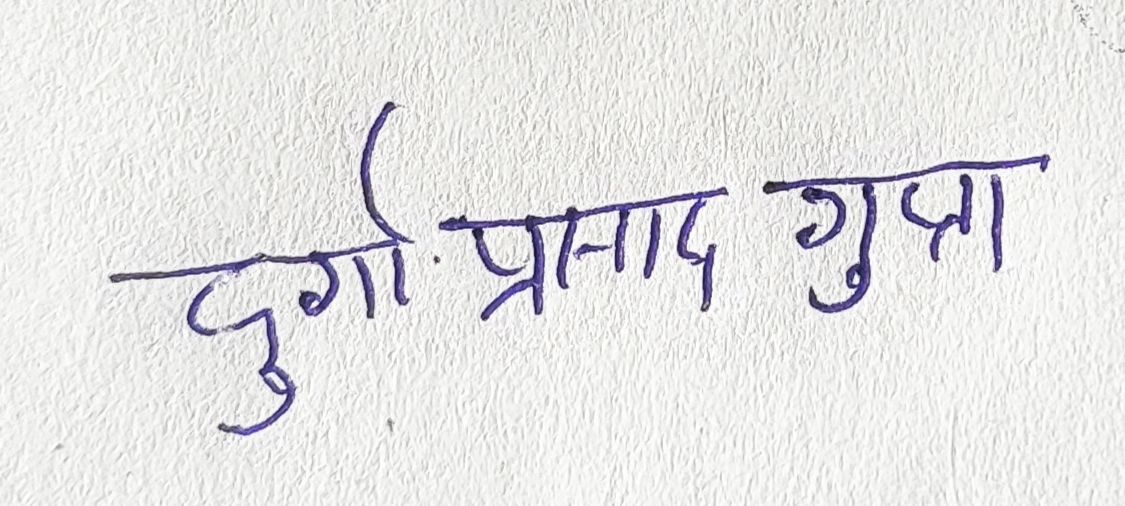 दुर्गा प्रसाद गुप्ता